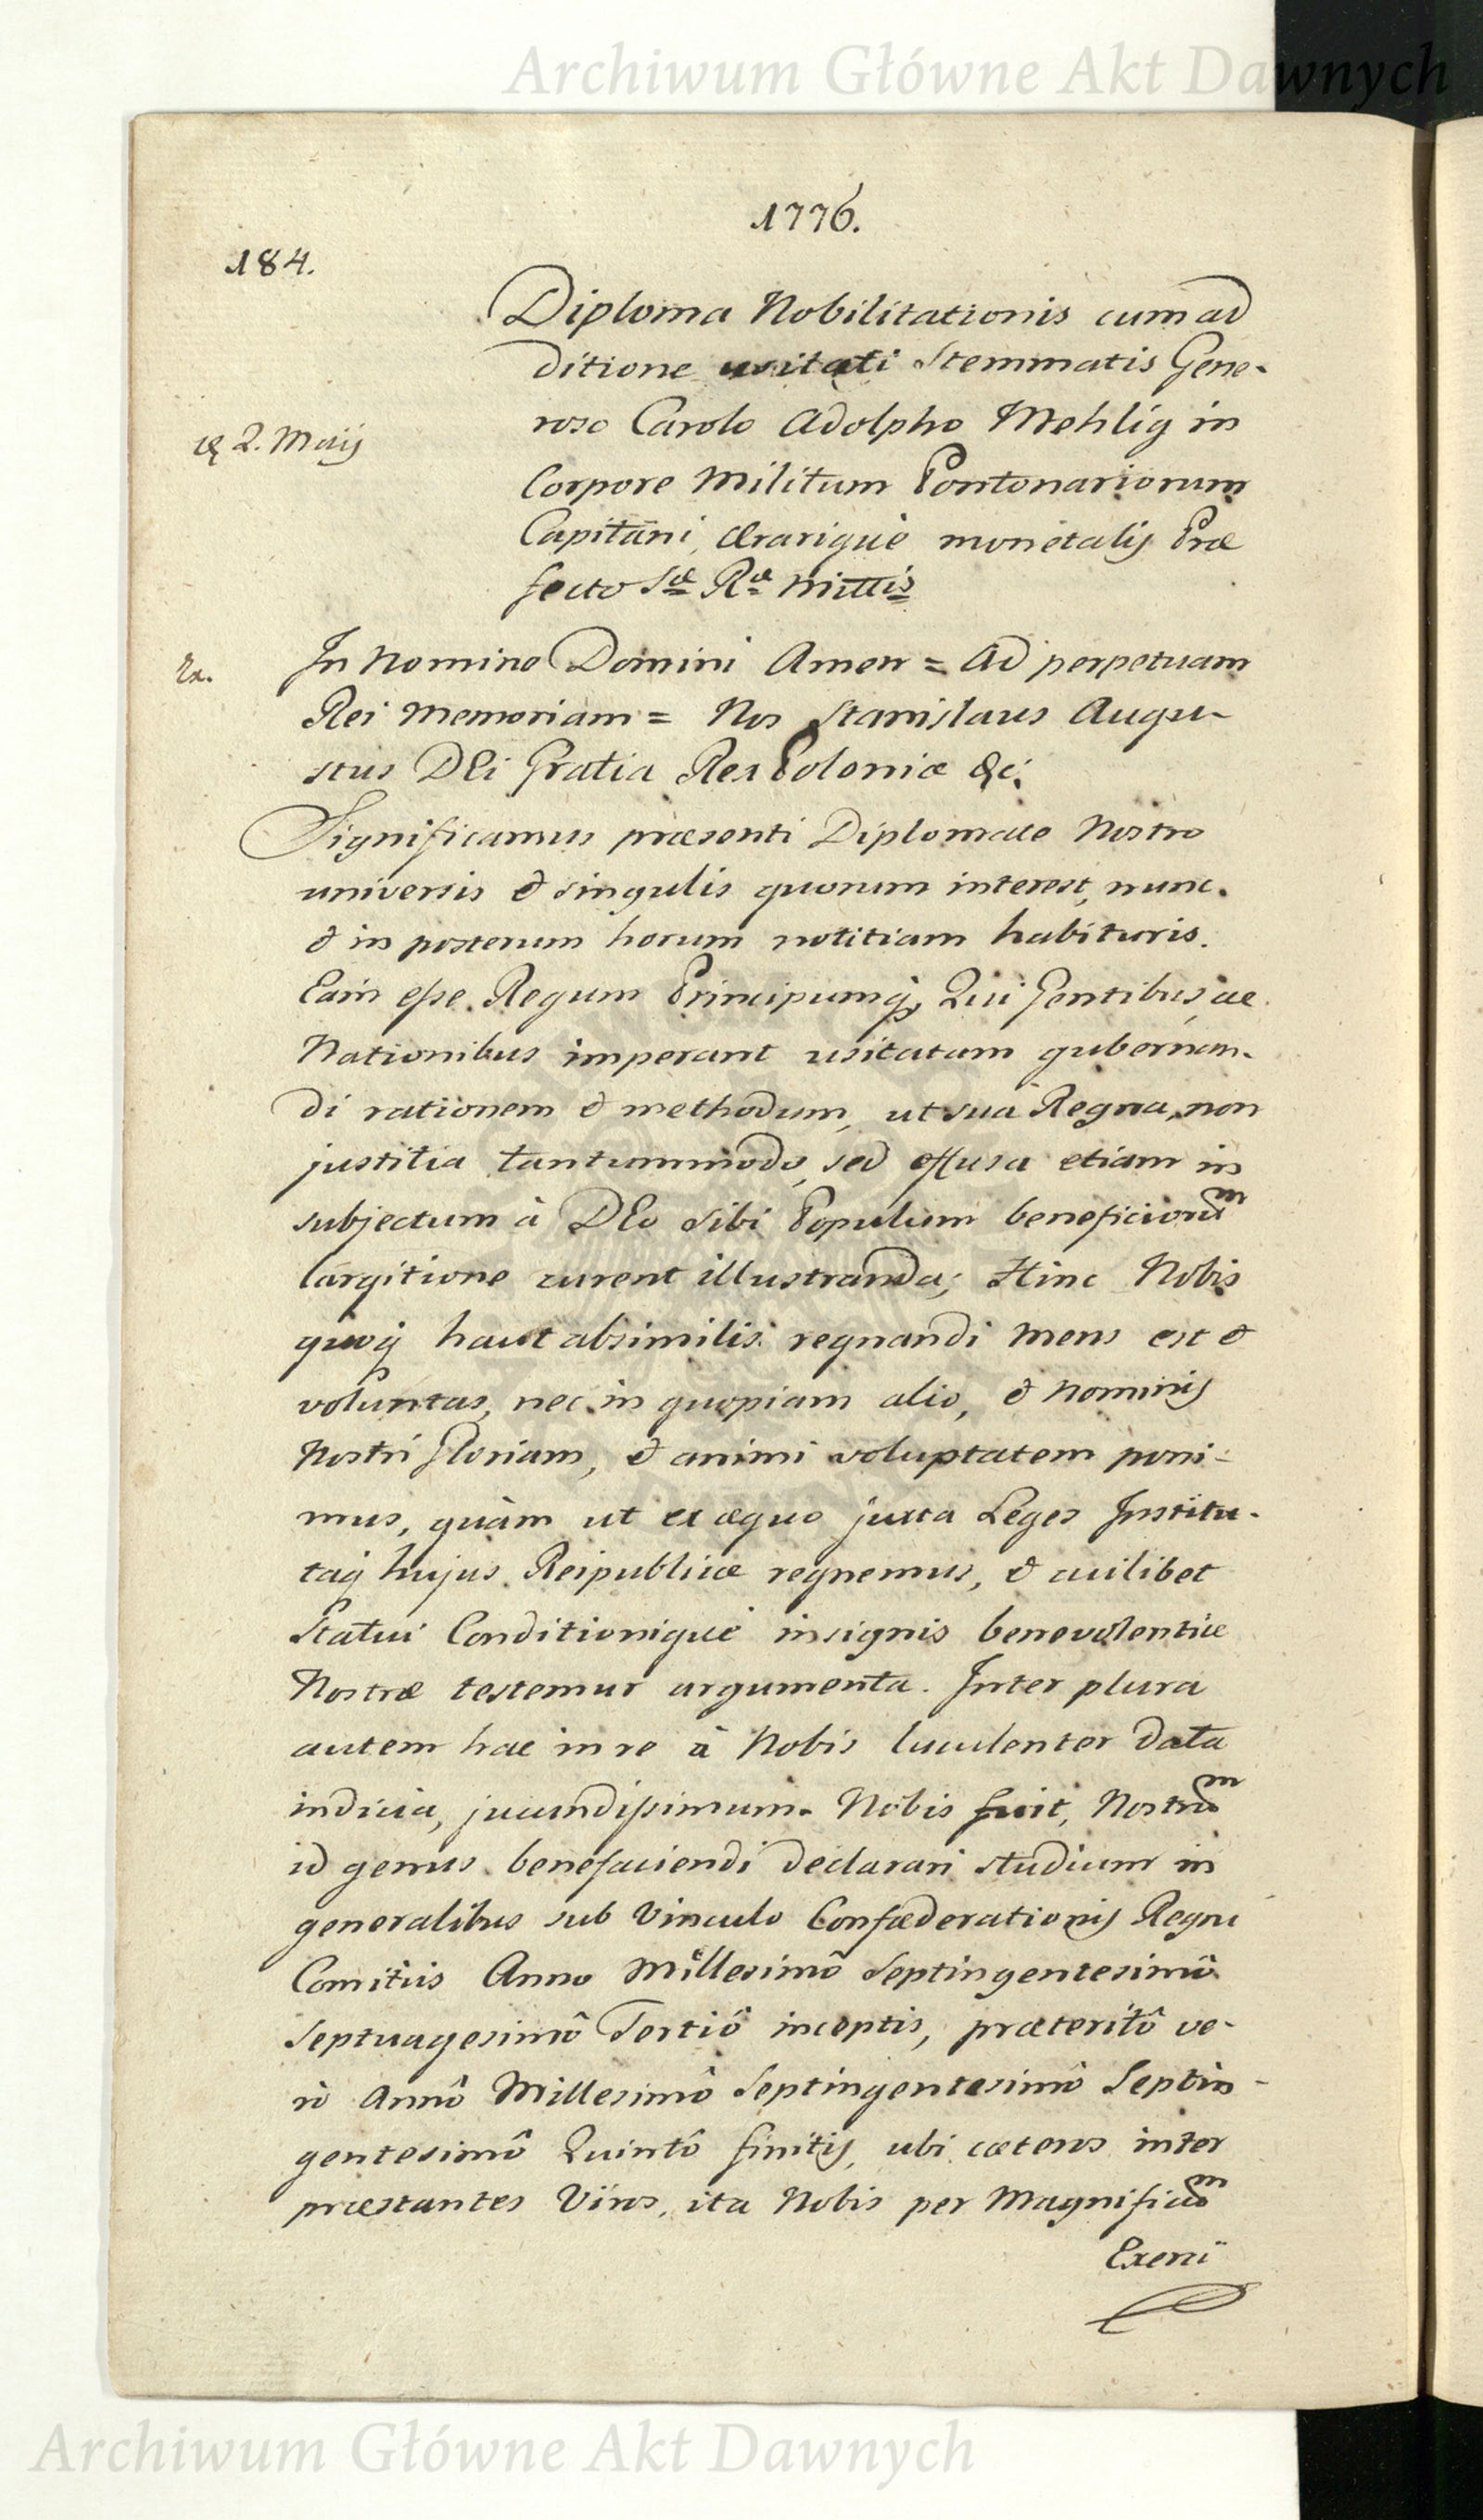 Archiwum Główne Akt Dawnych
1776.
184.
Diploma Nobilitationis cum ad
ditione usitati Stemmatis Gene-
roso Carolo Adolpho Mehlig in
d. 2. Maij
Corpore Militum Pontonariorum
Capitani, Ærariqúe monetalis Præ
fecto Sæ Ræ Mittis
Ex.
In Nomine Domini Amen = Ad perpetuam
Rei Memoriam = Nos Stanislaus Augu-
stus DEi Gratia Rex Poloniæ &c:
Significamus præsenti Diplomate Nostro
universis & singulis quorum interest, nunc
& in posterum horum notitiam habituris.
Eam esse Regum Principumq, Qui Gentibus, ac
Nationibus imperant usitatam gubernan-
di rationem & methodum, ut sua Regna, non
justitia tantummodo, sed effusa etiam in
subjectum à DEo sibi Populum beneficiorum
largitione curent illustranda; Hinc Nobis
quoq haut absimilis regnandi mens est &
voluntas, nec in quopiam alio, & Nominis
Nostri Gloriam, & animi voluptatem poni-
mus, quàm ut ex æquo juxta Leges Institu-
taq hujus Reipublicæ regnemus, & cuilibet
Statui Conditioniqué insignis benevolentiæ
Nostræ testemur argumenta. Inter plura
autem hac in re à Nobis luculenter data
indicia, jucundissimum Nobis fuit, Nostrum
id genus benefaciendi declarari studium in
generalibus sub Vinculo Confæderationis Regni
Comitiis Anno Millesimô Septingentesimô
Septuagesimô Tertiô inceptis, præteritô ve-
rò Annô Millesimô Septingentesimô Septin-
gentesimô Quintô finitis, ubi cæteros inter
præstantes Viros, ita Nobis per Magnificum
Exeni
Archiwum Główne Akt Dawnych